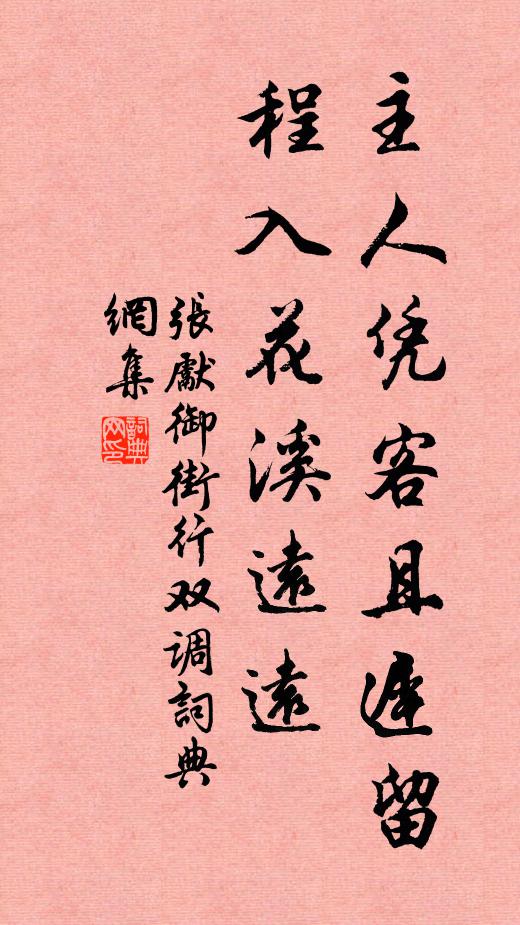 主人凭客且遲留
程入花溪遠遠
張獻御街行双调詞典
網集
詞典網印